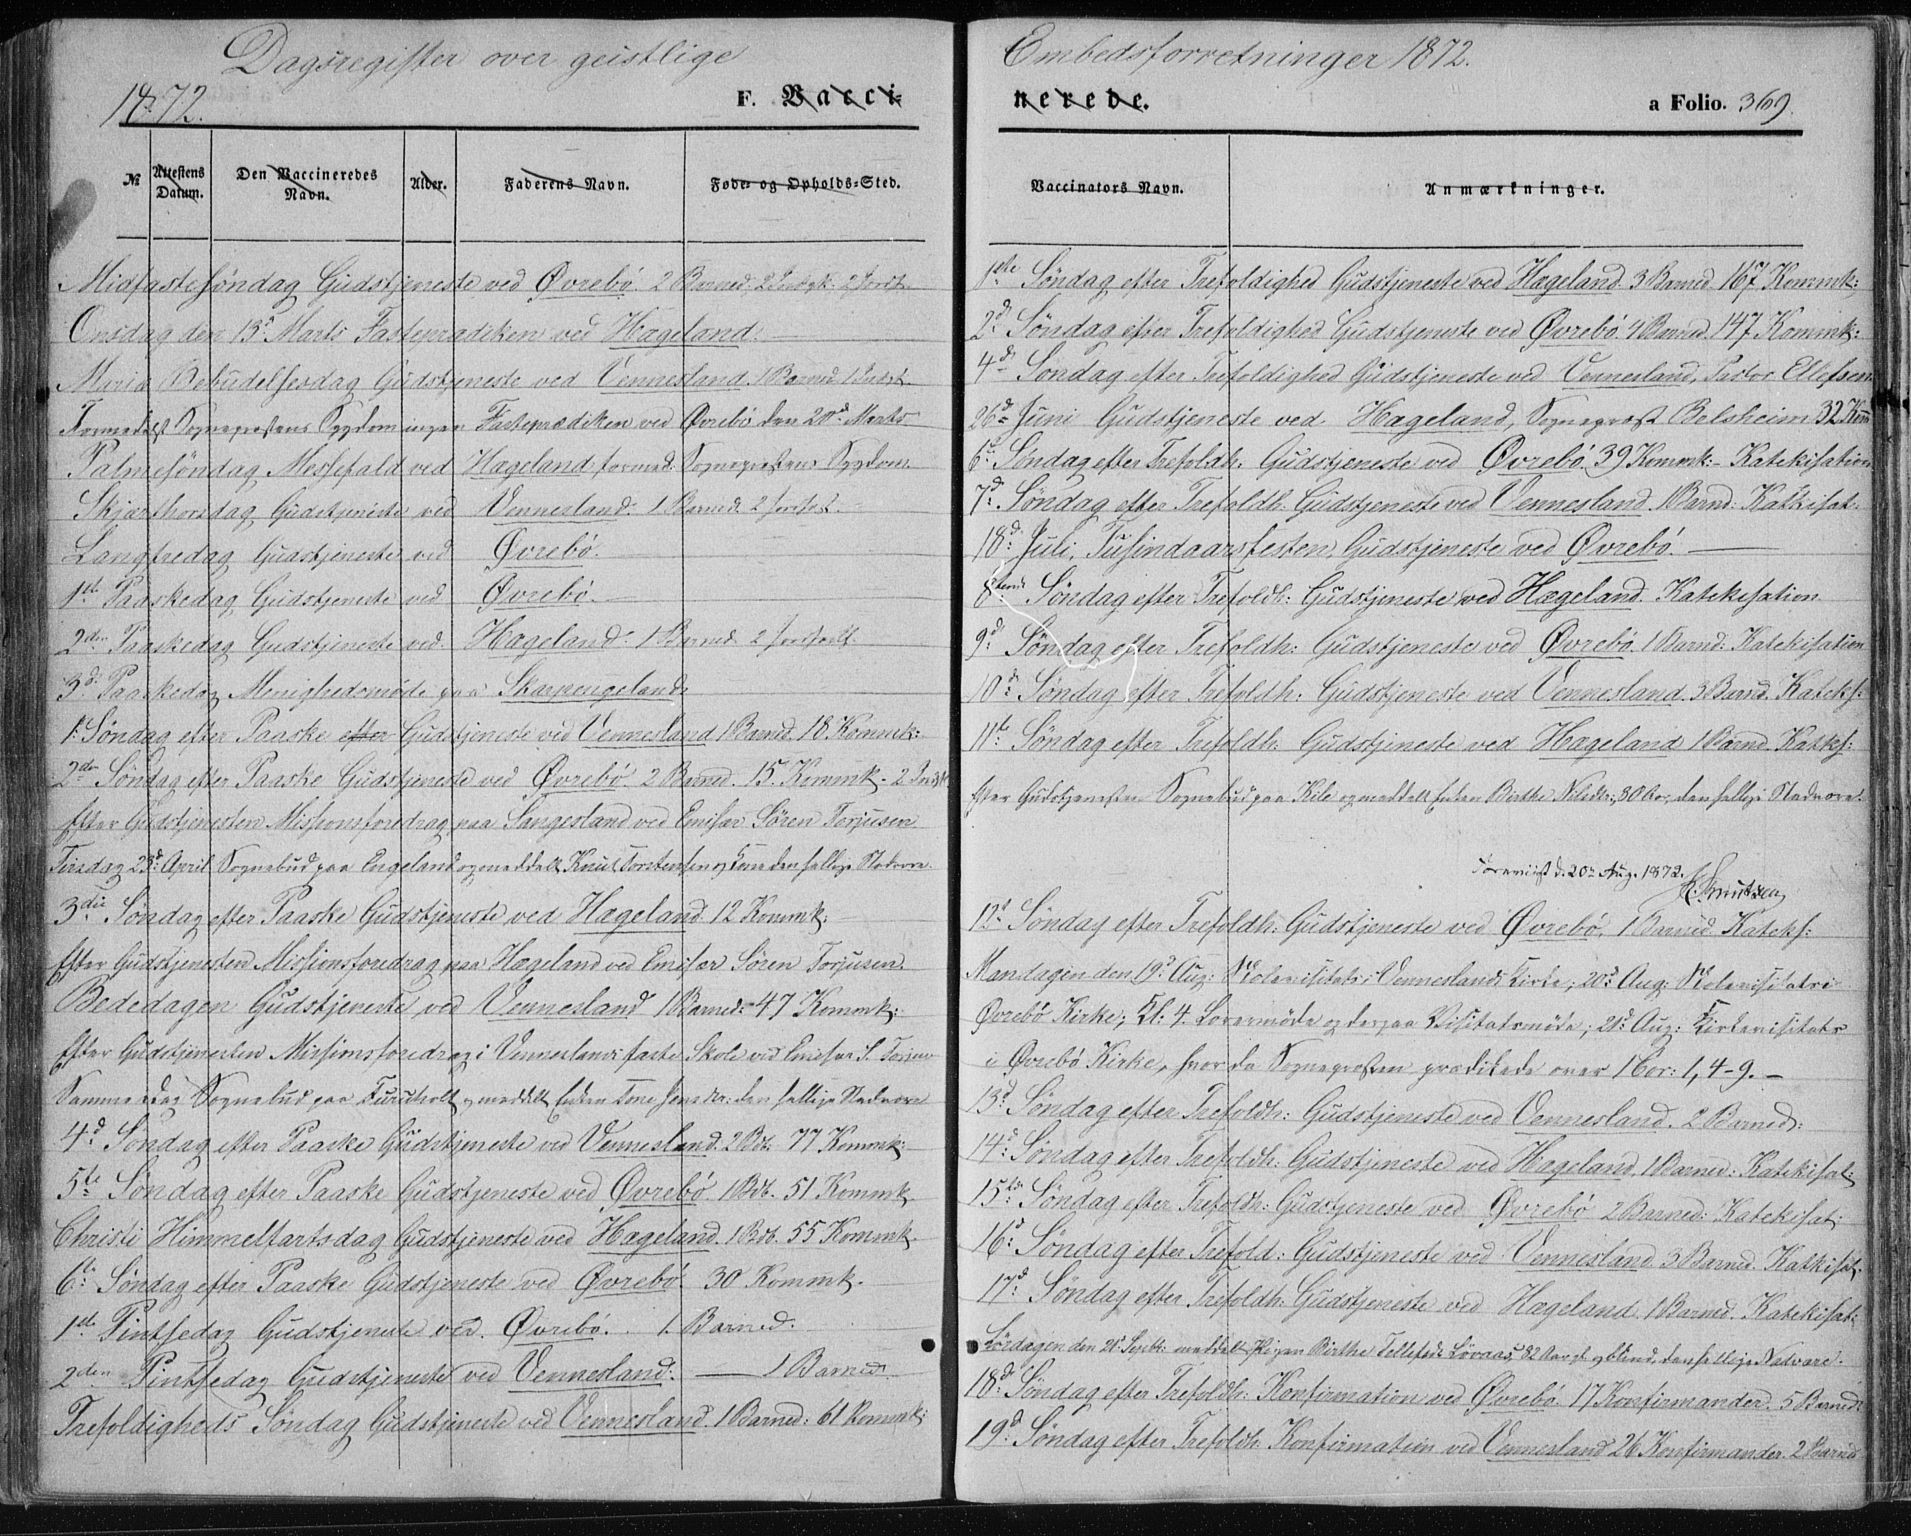 Dagsregister over geistlige
1872.
F. Vacci=
№
Attestens Datum.
Den Vaccineredes Navn.
Alder.
Faderens Navn.
Føde= og Opholds=Sted.
Midfastesöndag Gudstjeneste ved Øvrebö. 2 Barned. 2
Onsdag den 13d Marts Fasteprædiken ved Hægeland.
Mariæ Bebudelsesdag Gudstjeneste ved Vennesland. 1 Barned. 1
Formedelst Sogneprestens Sygdom ingen Fasteprædiken ved Øvrebö den 20d Marts
Palmesöndag, Messefald ved Hægeland formed. Sogneprestens Sygdom.
Skjærthorsdag, Gudstjeneste ved Vennesland: 1 Barned. 2
Langfredag Gudstjeneste ved Øvrebö.
1ste Paaskedag, Gudstjeneste ved Øvrebö.
2den Paaskedag Gudstjeneste ved Hægeland: 1 Barned. 2
3d Paaskedag Menighedsmöde paa Skarpengeland
1: Söndag efter Paaske efter Gudstjeneste ved Vennesland 1 Barned. 18 Kommk:
2den Söndag efter Paaske Gudstjeneste ved Øvrebö. 2 Barned. 15 Kommk. 2
Efter Gudstjenesten Missionsforedrag paa Sangesland ved Emisær Sören Torjusen.
Tirsdag 23d April Sognebud paa Engeland og meddelt Knut Torstensen og Kone den hellige Nadvere.
3die Söndag efter Paaske Gudstjeneste ved Hægeland 12 Kommk:
Efter Gudstjenesten Missionsforedrag paa Hægeland ved Emisær Sören Torjusen.
Bededagen Gudstjeneste ved Vennesland 1 Barned: 47 Kommk:
Efter Gudstjenesten Missionsforedrag i Venneslands faste Skole ved Emisær S. Torjusen
Samme Dag Sognebud paa og meddelt Enken Tone Jensdtr: den hellige Nadvere
4d Söndag efter Paaske Gudstjeneste ved Vennesland. 2 Bdb. 77 Kommk:
5te Söndag efter Paaske Gudstjeneste ved Øvrebö. 1 Bdb. 51 Kommk.
Christi Himmelfartsdag Gudstjeneste ved Hægeland. 1 Bdb. 55 Kommk.
6te Söndag efter Paaske Gudstjeneste ved Øvrebö. 30 Kommk.
1ste Pintsedag Gudstjeneste ved. Øvrebö. 1. Barned.
2den Pintsedag Gudstjeneste ved Vennesland: 1 Barned.
Trefoldigheds Söndag Gudstjeneste ved Vennesland. 1 Barned: 61 Kommk:
Embedsforretninger 1872.
nerede.
a Folio. 369.
Vaccinators Navn.
Anmærkninger.
1ste Söndag efter Trefoldighed Gudstjeneste ved Hægeland. 3 Barned. 167 Kommk:
2d Söndag efter Trefoldighed Gudstjeneste ved Øvrebö. 4 Barned. 147 Kommk:
4d Söndag efter Trefoldighed Gudstjeneste ved Vennesland, Pastor Ellefsen
26d Juni Gudstjeneste ved Hægeland, Sogneprest Belsheim 32 Komm
6te Söndag efter Trefoldh: Gudstjeneste ved Øvrebö. 39 Kommk: - Katekisation
7d Söndag efter Trefoldh: Gudstjeneste ved Vennesland. 1 Barned: Katkisat.
18d Juli. Tusindaarsfesten. Gudstjeneste ved Øvrebö.
8tende Söndag efter Trefoldh: Gudstjeneste ved Hægeland. Katekisation
9d Söndag efter Trefoldh: Gudstjeneste ved Øvrebö. 1 Barned. Katekisation
10d Söndag efter Trefoldh: Gudstjeneste ved Vennesland. 3 Barned. Kateks:
11te Söndag efter Trefoldh: Gudstjeneste ved Hægeland 1 Barned. Katks:
Efter Gudstjenesten Sognebud paa Kile og meddelt Enken Birthe Nilsdtr; 80 Aar, den hellige Nadvere.
Forevist d. 20de Aug. 1872.
Knutzen
12te Söndag efter Trefoldh: Gudstjeneste ved Øvrebö. 1 Barned. Kateks:
Mandagen den 19d Aug: Skolevisitats i Venneslands Kirke; 20d Aug: Skolevisitats i
Øvrebö Kirke; Kl: 4. Lærermöde og derpaa Visitatsmöde; 21d Aug: Kirkevisitats
i Øvrebö Kirke, hvor da Sognepresten prædikede over 1 Cor: 1, 4-9.
13d Söndag efter Trefoldh: Gudstjeneste ved Vennesland. 2 Barned:
14d Söndag efter Trefoldh: Gudstjeneste ved Hægeland. 1 Barned: Katekisat:
15de Söndag efter Trefoldh: Gudstjeneste ved Øvrebö 2 Barned: Katekisat:
16d Söndag efter Trefold: Gudstjeneste ved Vennesland 3 Barned. Katkisat.
17d Söndag efter Trefoldh: Gudstjeneste ved Hægeland. 1 Barned. Katekisat:
Lördagen den 21d Septbr: meddelt Pigen Birthe Tellefsdr Lövaas, 82 Aar gl. og blind, den hellige Nadvere.
18d Söndag efter Trefoldh: Konfirmation ved Øvrebö. 17 Konfirmander. 5 Barned:
19d Söndag efter Trefoldh: Konfirmation ved Vennesland 26 Konfirmander. 2 Barned